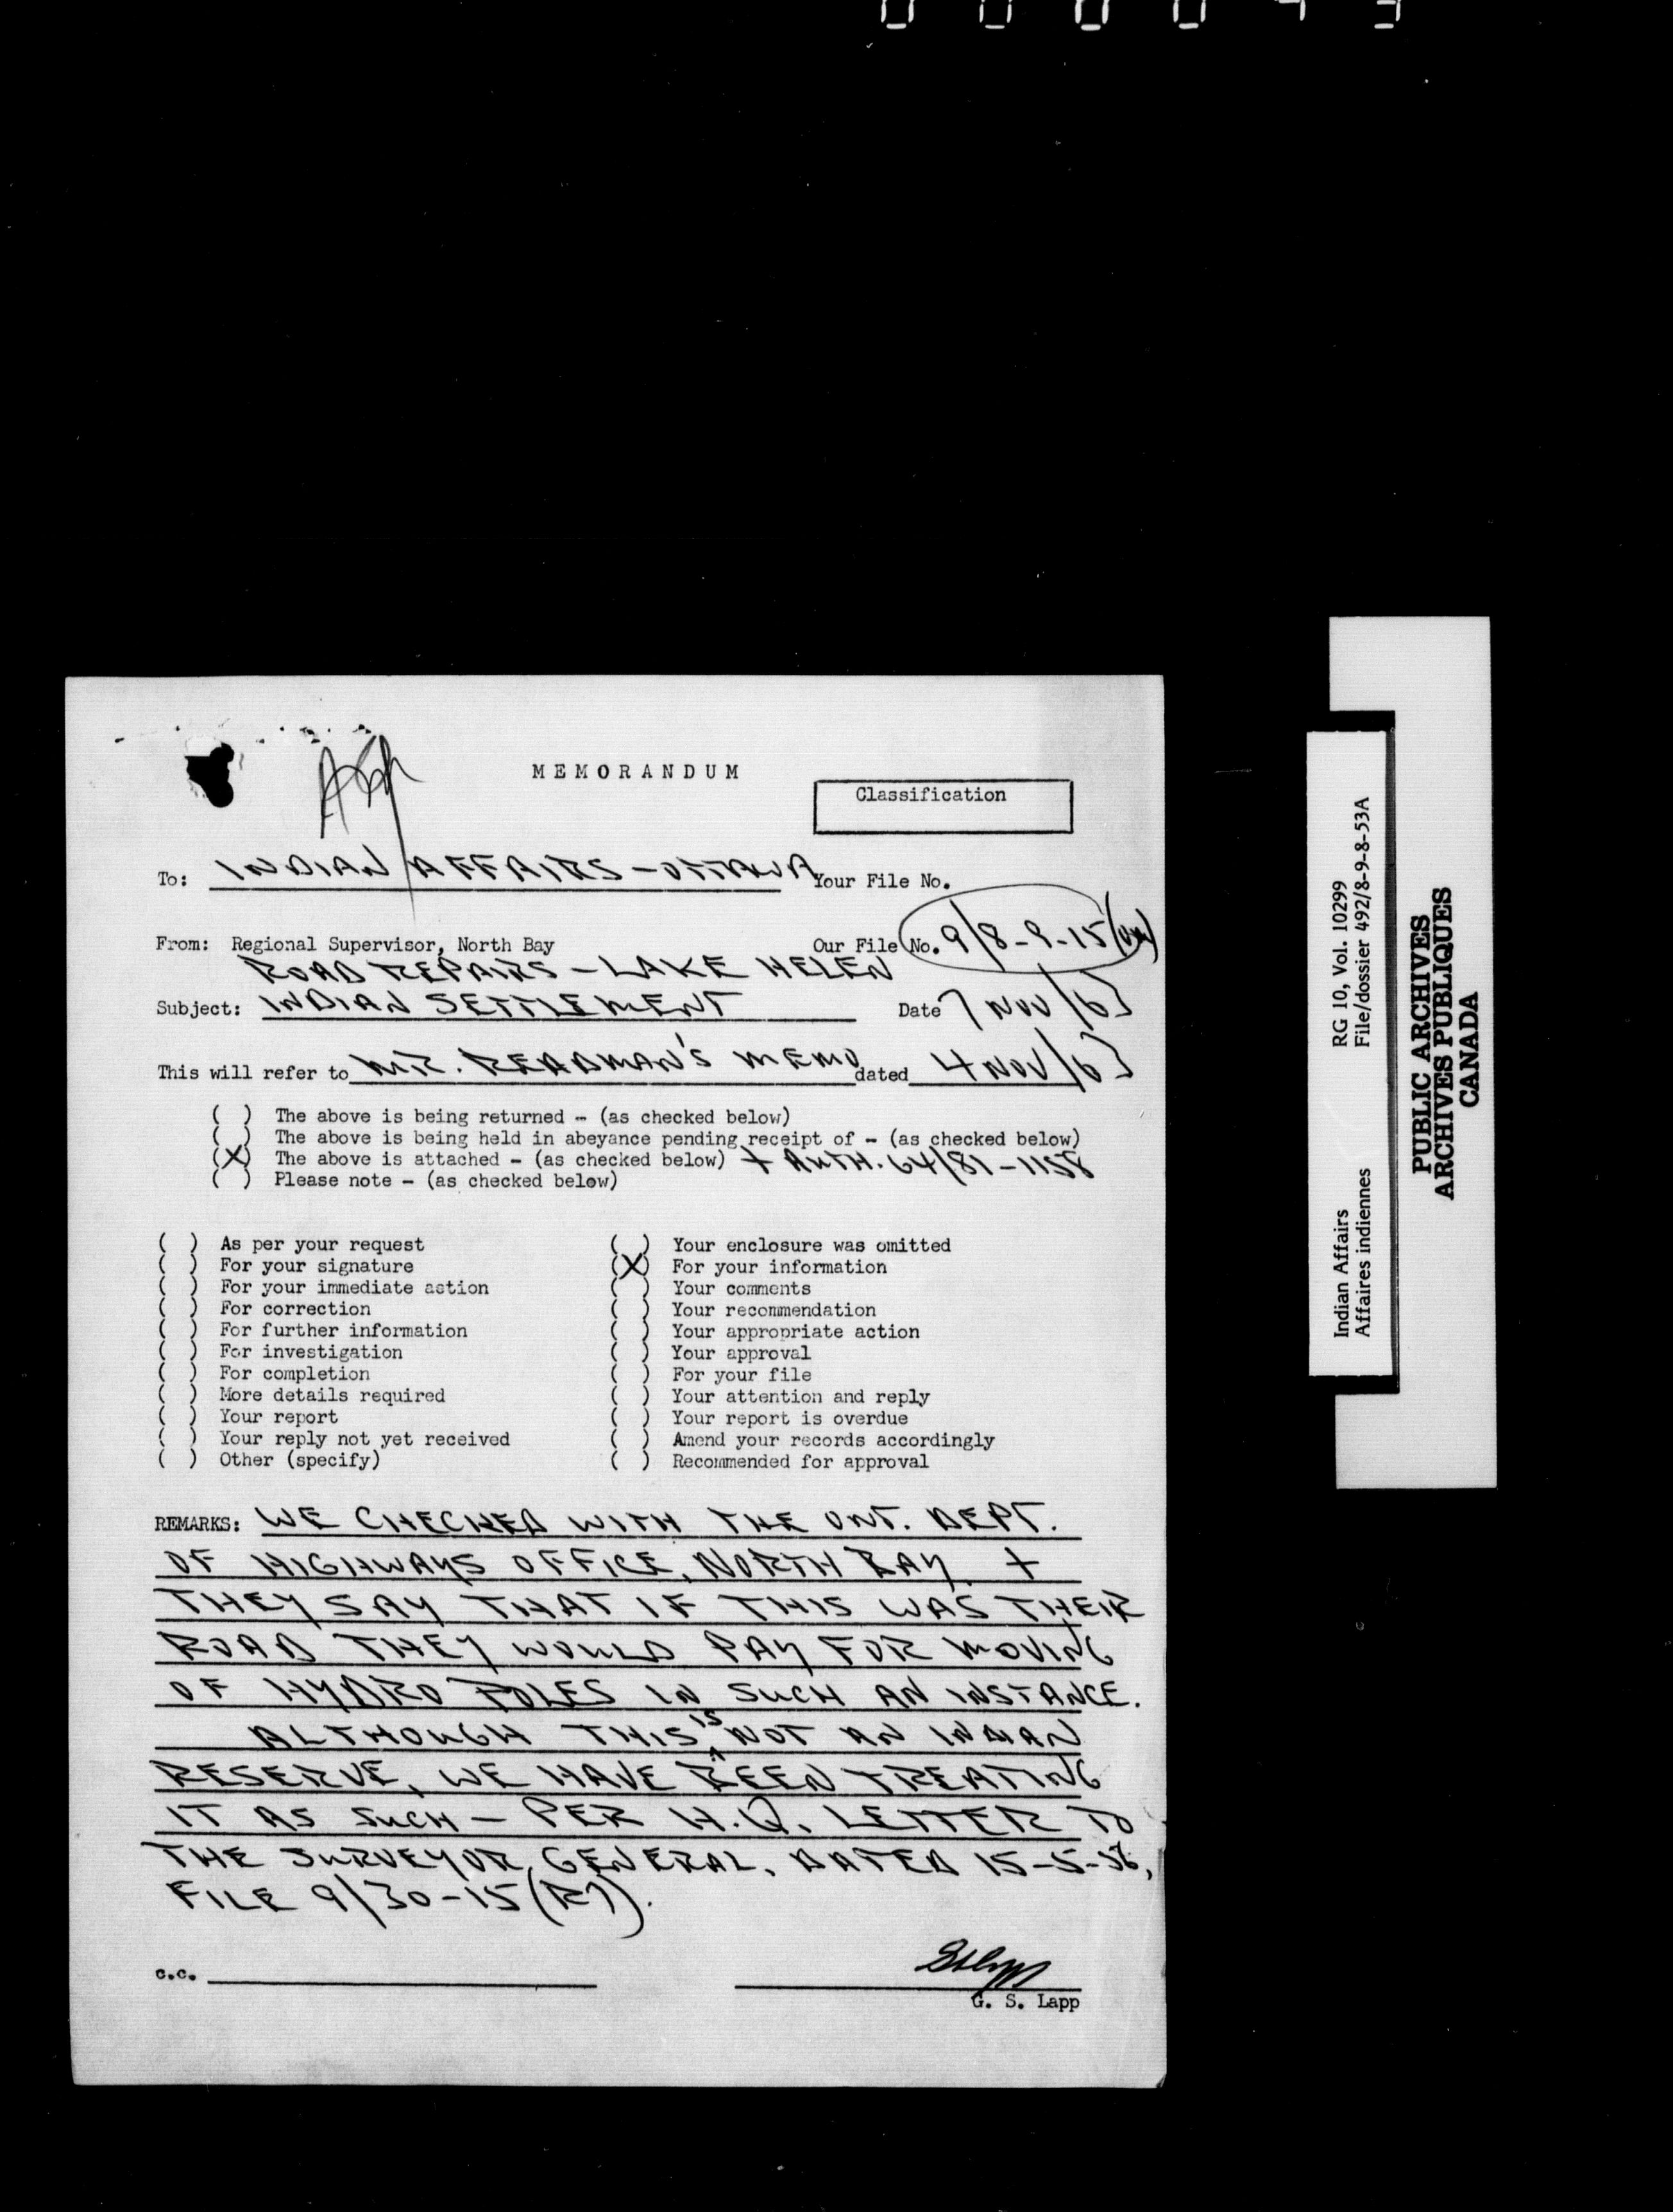 MEMORANDUM
Classification
To: INDIAN AFFAIRS - OTTAWA Your File No.
From: Regional Supervisor, North Bay Our File No. 9/8-9-15
ROAD REPAIRS - LAKE HELEN
Subject: INDIAN SETTLEMENT Date 7 NOV/63
This will refer to MR. READMAN'S MEMO dated 4 NOV/63
( ) The above is being returned - (as checked below)
( ) The above is being held in abeyance pending receipt of - (as checked below)
(X) The above is attached - (as checked below) + AUTH. 64/81-1158
( ) Please note - (as checked below)
( ) As per your request ( ) Your enclosure was omitted
( ) For your signature (X) For your information
( ) For your immediate action ( ) Your comments
( ) For correction ( ) Your recommendation
( ) For further information ( ) Your appropriate action
( ) For investigation ( ) Your approval
( ) For completion ( ) For your file
( ) More details required ( ) Your attention and reply
( ) Your report ( ) Your report is overdue
( ) Your reply not yet received ( ) Amend your records accordingly
( ) Other (specify) ( ) Recommended for approval
REMARKS: WE CHECKED WITH THE ONT. DEPT.
OF HIGHWAYS OFFICE, NORTH BAY, +
THEY SAY THAT IF THIS WAS THEIR
ROAD THEY WOULD PAY FOR MOVING
OF HYDRO POLES IN SUCH AN INSTANCE.
ALTHOUGH THIS IS NOT AN INDIAN
RESERVE, WE HAVE BEEN TREATING
IT AS SUCH - PER H.Q. LETTER TO
THE SURVEYOR GENERAL, DATED 15-5-56,
FILE 9/30-15 (R7).
c.c.
G. S. Lapp
Indian Affairs RG 10, Vol. 10299
Affaires indiennes File/dossier 492/8-9-8-53A
PUBLIC ARCHIVES
ARCHIVES PUBLIQUES
CANADA